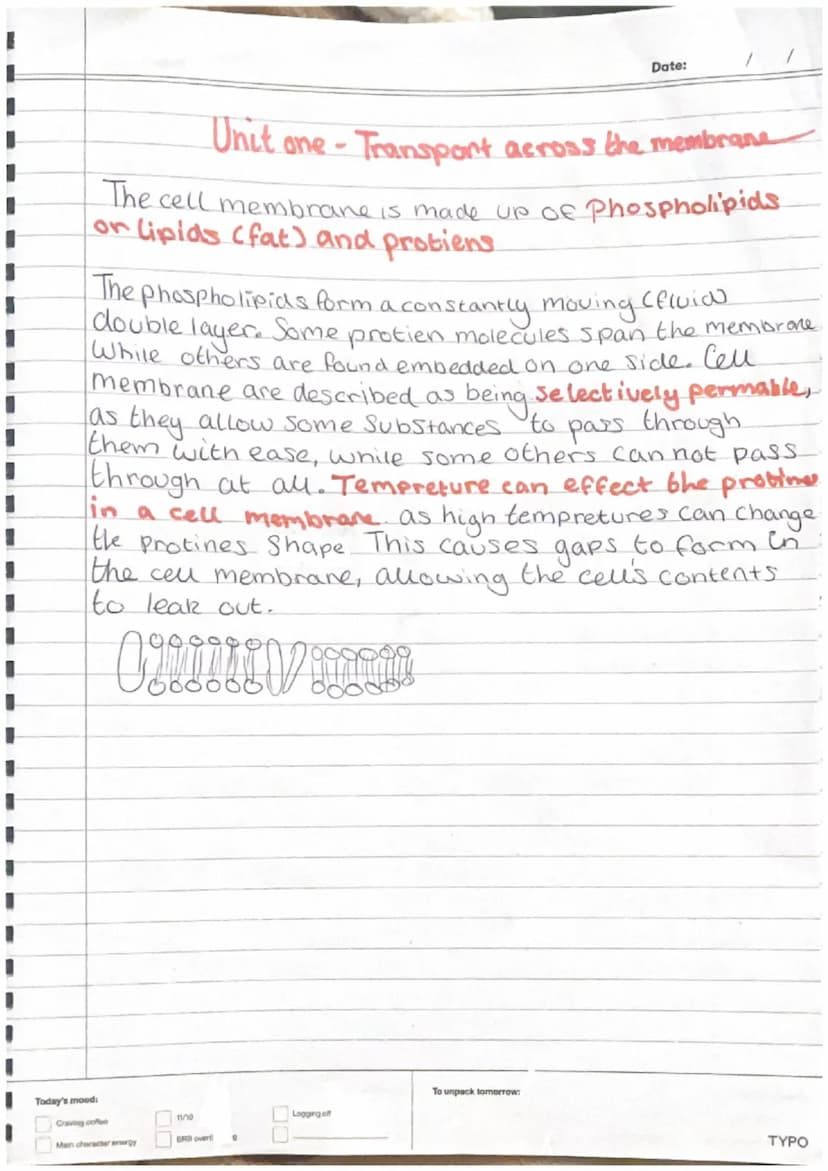 Date: / /
Unit one - Transport across the membrane
The cell membrane is made up of Phospholipids
or lipids (fat) and protiens
The phospholipids form a constantly moving (fluid)
double layer. Some protien molecules span the membrane
While others are found embedded on one side. Cell
membrane are described as being selectively permable,
as they allow some Substances to pass through
them with ease, while some others cannot pass
through at all. Tempreture can effect the protines
in a cell membrane. as high tempretures can change
the Protines Shape This causes gaps to form in
the cell membrane, allowing the cell's contents
to leak out.
Today's mood:
To unpack tomorrow:
Craving coffee
11/10
Logging off
Main character energy
BRB overt
TYPO